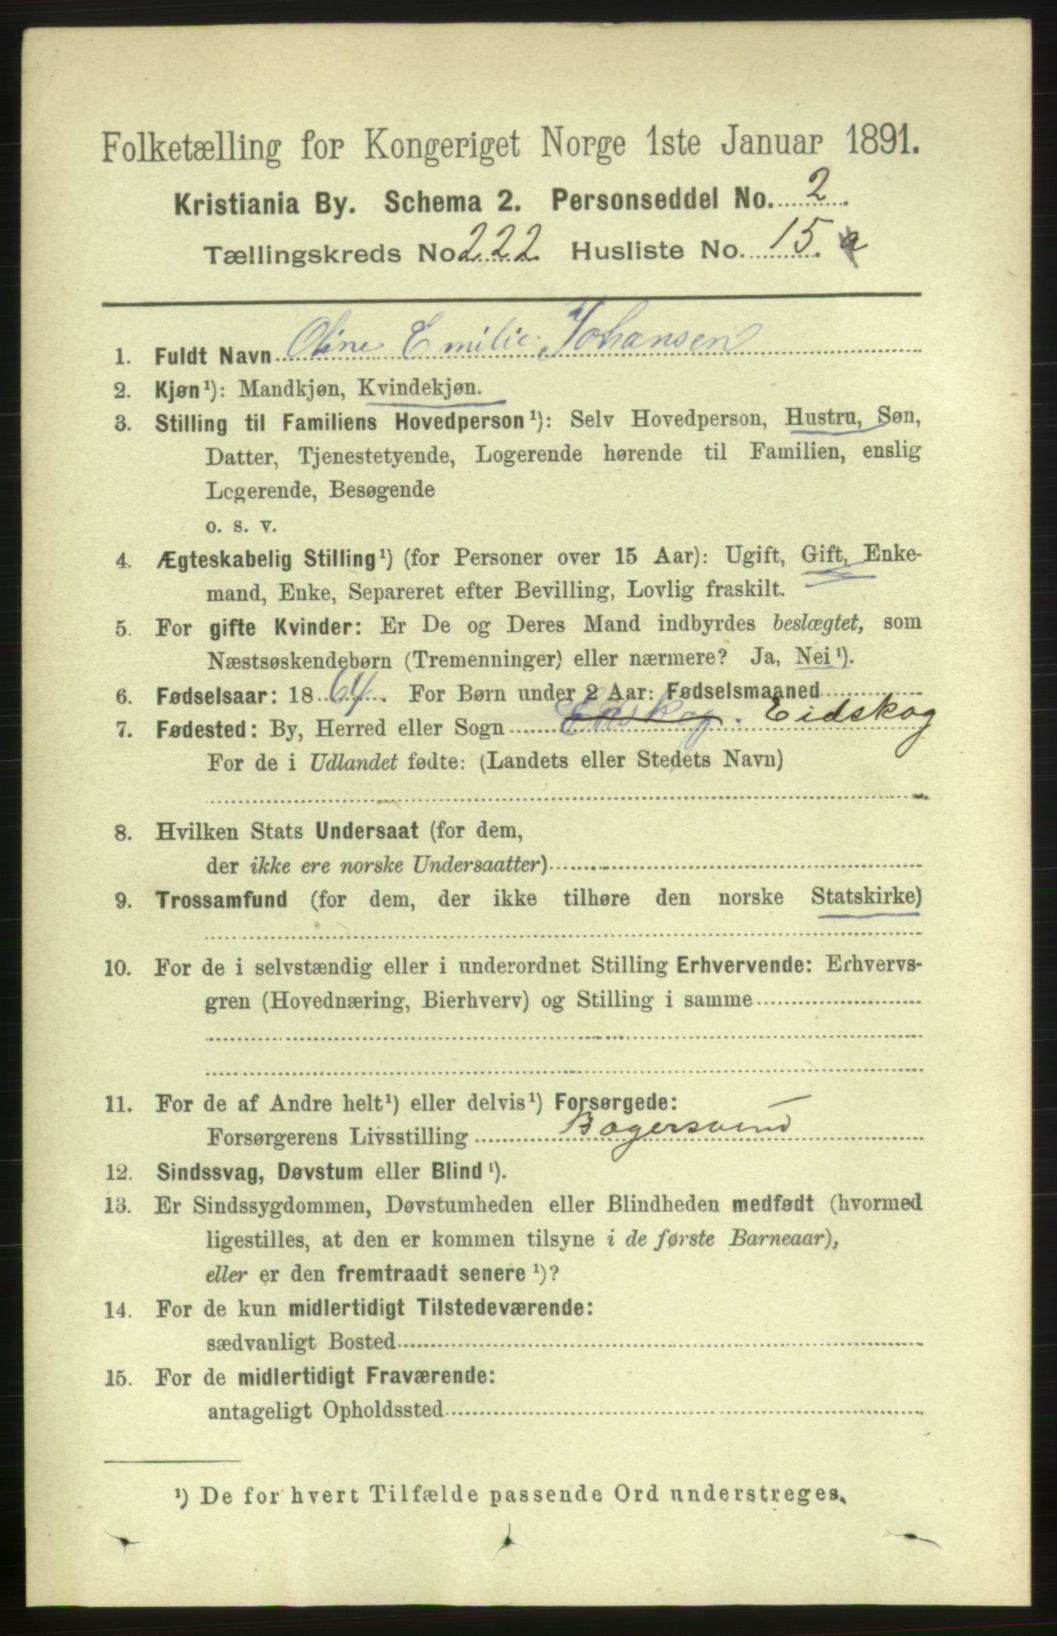 Folketælling for Kongeriget Norge 1ste Januar 1891.
Kristiania By. Schema 2. Personseddel No. 2.
Tællingskreds No. 222. Husliste No. 15. a
1. Fuldt Navn Oline Emilie Johansen
2. Kjøn¹): Mandkjøn, Kvindekjøn.
3. Stilling til Familiens Hovedperson¹): Selv Hovedperson, Hustru, Søn,
Datter, Tjenestetyende, Logerende hørende til Familien, enslig
Logerende, Besøgende
o. s. v.
4. Ægteskabelig Stilling¹) (for Personer over 15 Aar): Ugift, Gift, Enke-
mand, Enke, Separeret efter Bevilling, Lovlig fraskilt.
5. For gifte Kvinder: Er De og Deres Mand indbyrdes beslægtet, som
Næstsøskendebørn (Tremenninger) eller nærmere? Ja, Nei¹).
6. Fødselsaar: 1864. For Børn under 2 Aar: Fødselsmaaned
7. Fødested: By, Herred eller Sogn Edskog. Eidskog
For de i Udlandet fødte: (Landets eller Stedets Navn)
8. Hvilken Stats Undersaat (for dem,
der ikke ere norske Undersaatter)
9. Trossamfund (for dem, der ikke tilhøre den norske Statskirke)
10. For de i selvstændig eller i underordnet Stilling Erhvervende: Erhvervs-
gren (Hovednæring, Bierhverv) og Stilling i samme
11. For de af Andre helt¹) eller delvis¹) Forsørgede:
Forsørgerens Livsstilling Bagersvend
12. Sindssvag, Døvstum eller Blind¹).
13. Er Sindssygdommen, Døvstumheden eller Blindheden medfødt (hvormed
ligestilles, at den er kommen tilsyne i de første Barneaar),
eller er den fremtraadt senere¹)?
14. For de kun midlertidigt Tilstedeværende:
sædvanligt Bosted
15. For de midlertidigt Fraværende:
antageligt Opholdssted
¹) De for hvert Tilfælde passende Ord understreges.